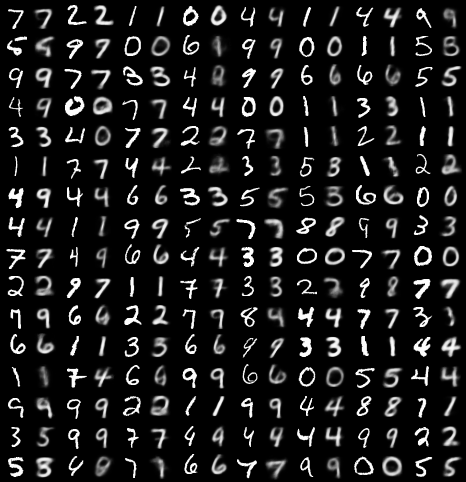 7 7 2 2 1 1 0 0 4 4 1 1 4 4 9 9
5 5 9 7 0 0 6 9 9 0 0 1 1 5 5
9 9 7 7 3 3 4 9 9 6 6 6 6 5 5
4 9 0 0 7 7 4 4 0 0 1 1 3 3 1 1
3 3 4 0 7 7 2 2 7 7 1 1 2 2 1 1
1 1 7 7 4 4 2 2 3 3 5 3 1 1 2 2
4 9 4 4 6 6 3 3 5 5 5 3 6 6 0 0
4 4 1 1 9 9 5 5 7 7 8 8 9 9 3 3
7 7 4 9 6 6 4 4 3 3 0 0 7 7 0 0
2 2 9 7 1 1 7 7 3 3 2 2 9 8 7 7
7 9 6 6 2 2 7 9 8 4 4 4 7 7 3 3
6 6 1 1 3 3 6 6 9 9 3 3 1 1 4 4
1 1 7 4 6 6 9 9 6 6 0 0 5 5 4 4
9 9 9 9 2 2 1 1 9 9 4 4 8 8 7 1
3 5 9 9 7 7 4 9 4 4 4 4 9 9 2 2
5 3 4 7 1 6 6 7 7 9 9 0 0 5 5